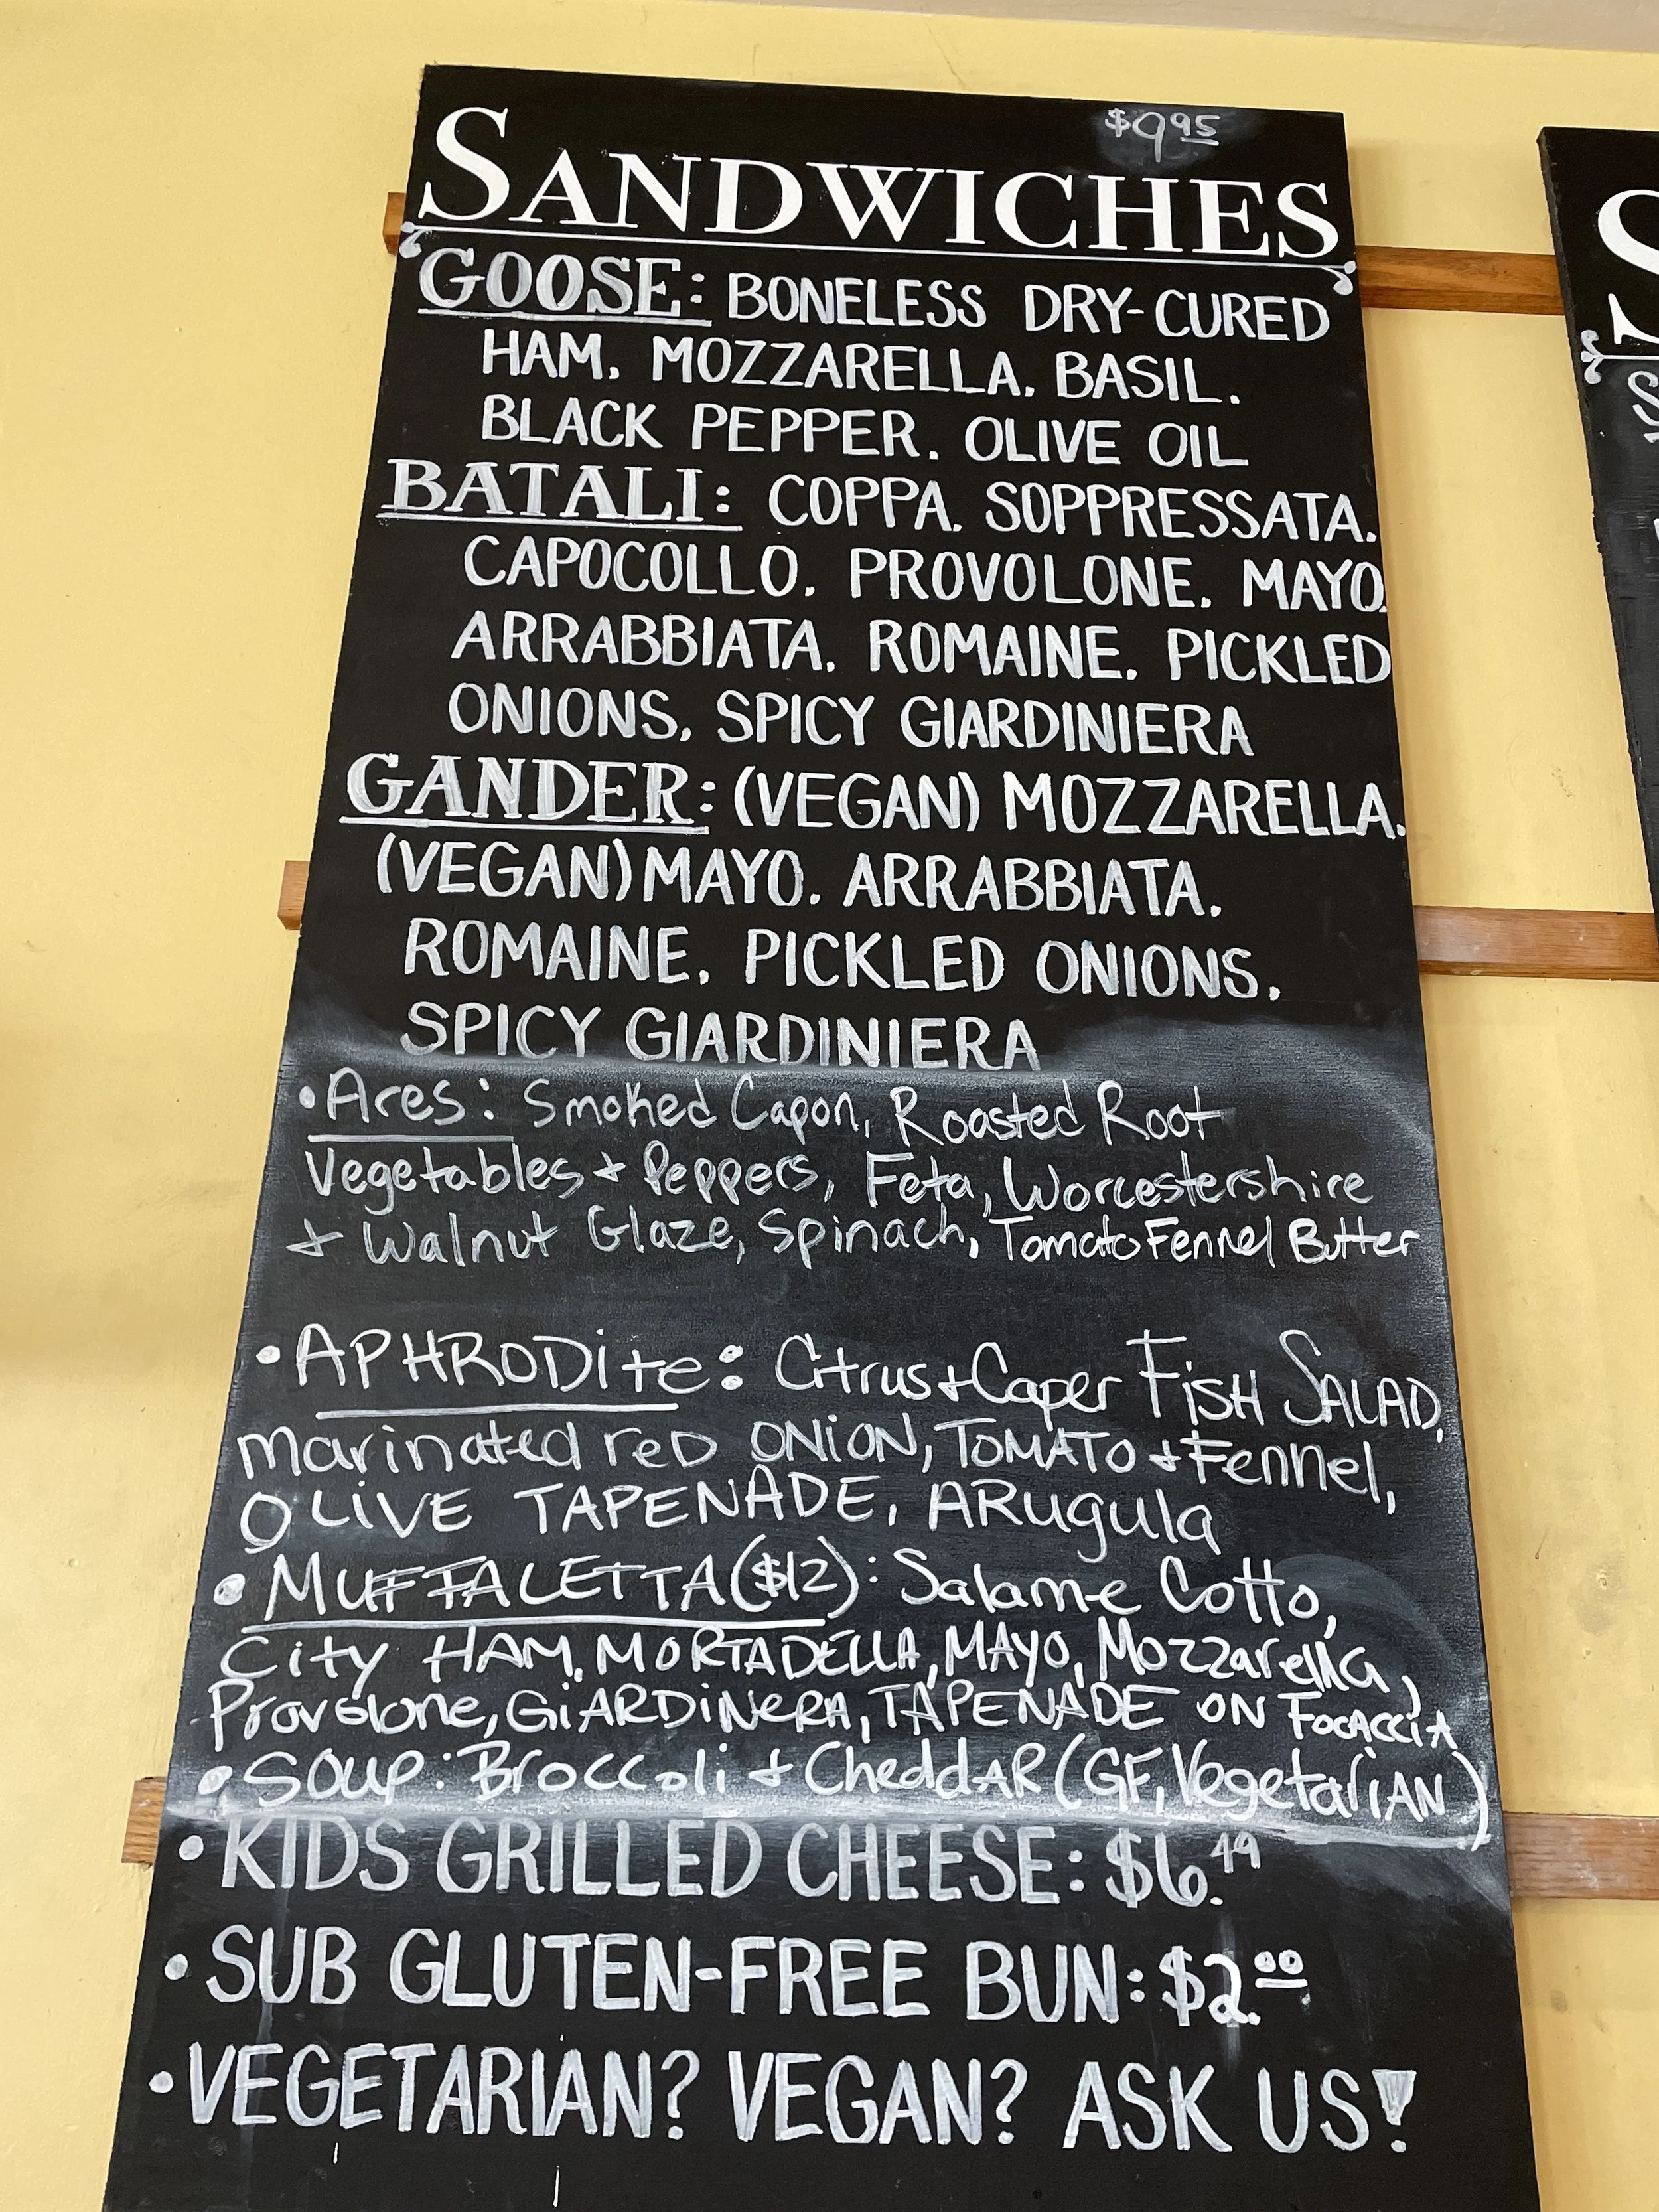 $9.95
SANDWICHES
GOOSE: BONELESS DRY-CURED
HAM. MOZZARELLA. BASIL.
BLACK PEPPER. OLIVE OIL
BATALI: COPPA. SOPPRESSATA.
CAPOCOLLO. PROVOLONE. MAYO.
ARRABBIATA. ROMAINE. PICKLED
ONIONS. SPICY GIARDINIERA
GANDER: (VEGAN) MOZZARELLA.
(VEGAN) MAYO. ARRABBIATA.
ROMAINE. PICKLED ONIONS.
SPICY GIARDINIERA
• Ares: Smoked Capon, Roasted Root
Vegetables + Peppers, Feta, Worcestershire
+ Walnut Glaze, Spinach, Tomato Fennel Butter
• APHRODite: Citrus + Caper FisH SALAD,
marinated reD ONiON, TOMATO + Fennel,
OLiVE TAPENADE, ARugula
• MUFFALETTA ($12): Salame Cotto,
City HAM, MORTADELLA, MAYO, Mozzarella,
Provolone, GiARDiNeRA, TAPENADE ON FOCACCiA
• SOUP: Broccoli + CheddAR (GF, VegetariAN)
• KIDS GRILLED CHEESE: $6.49
• SUB GLUTEN-FREE BUN: $2.00
• VEGETARIAN? VEGAN? ASK US!